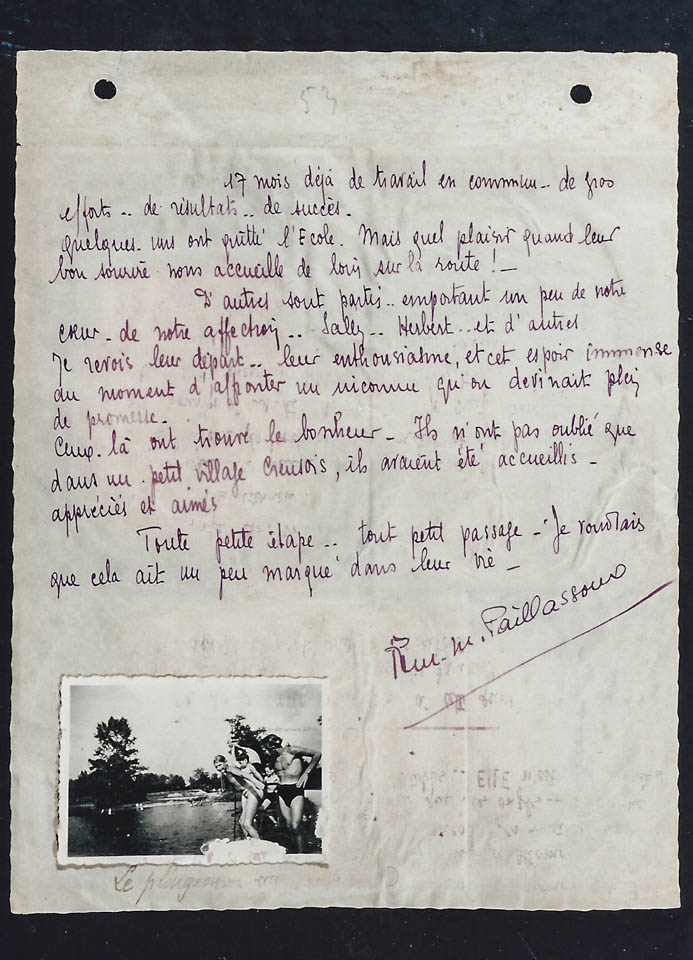 53
17 mois déjà de travail en commun.. de gros
efforts .. de résultats.. de succès.
Quelques uns ont quitté l'Ecole. Mais quel plaisir quand leur
bon sourire nous accueille de loin sur la route ! _
D'autres sont partis.. emportant un peu de notre
cœur.. de notre affection .. Saley .. Herbert .. et d'autres
Je revois leur départ .. leur enthousiasme, et cet espoir immense
du moment d'affronter un inconnu qu'on devinait plein
de promesse.
Ceux-là ont trouvé le bonheur _ Ils n'ont pas oublié que
dans un petit village Creusois, ils avaient été accueillis _
appréciés et aimés
Toute petite étape .. tout petit passage _ Je voudrais
que cela ait un peu marqué dans leur vie _
M. Paillassoux
Le plongeon